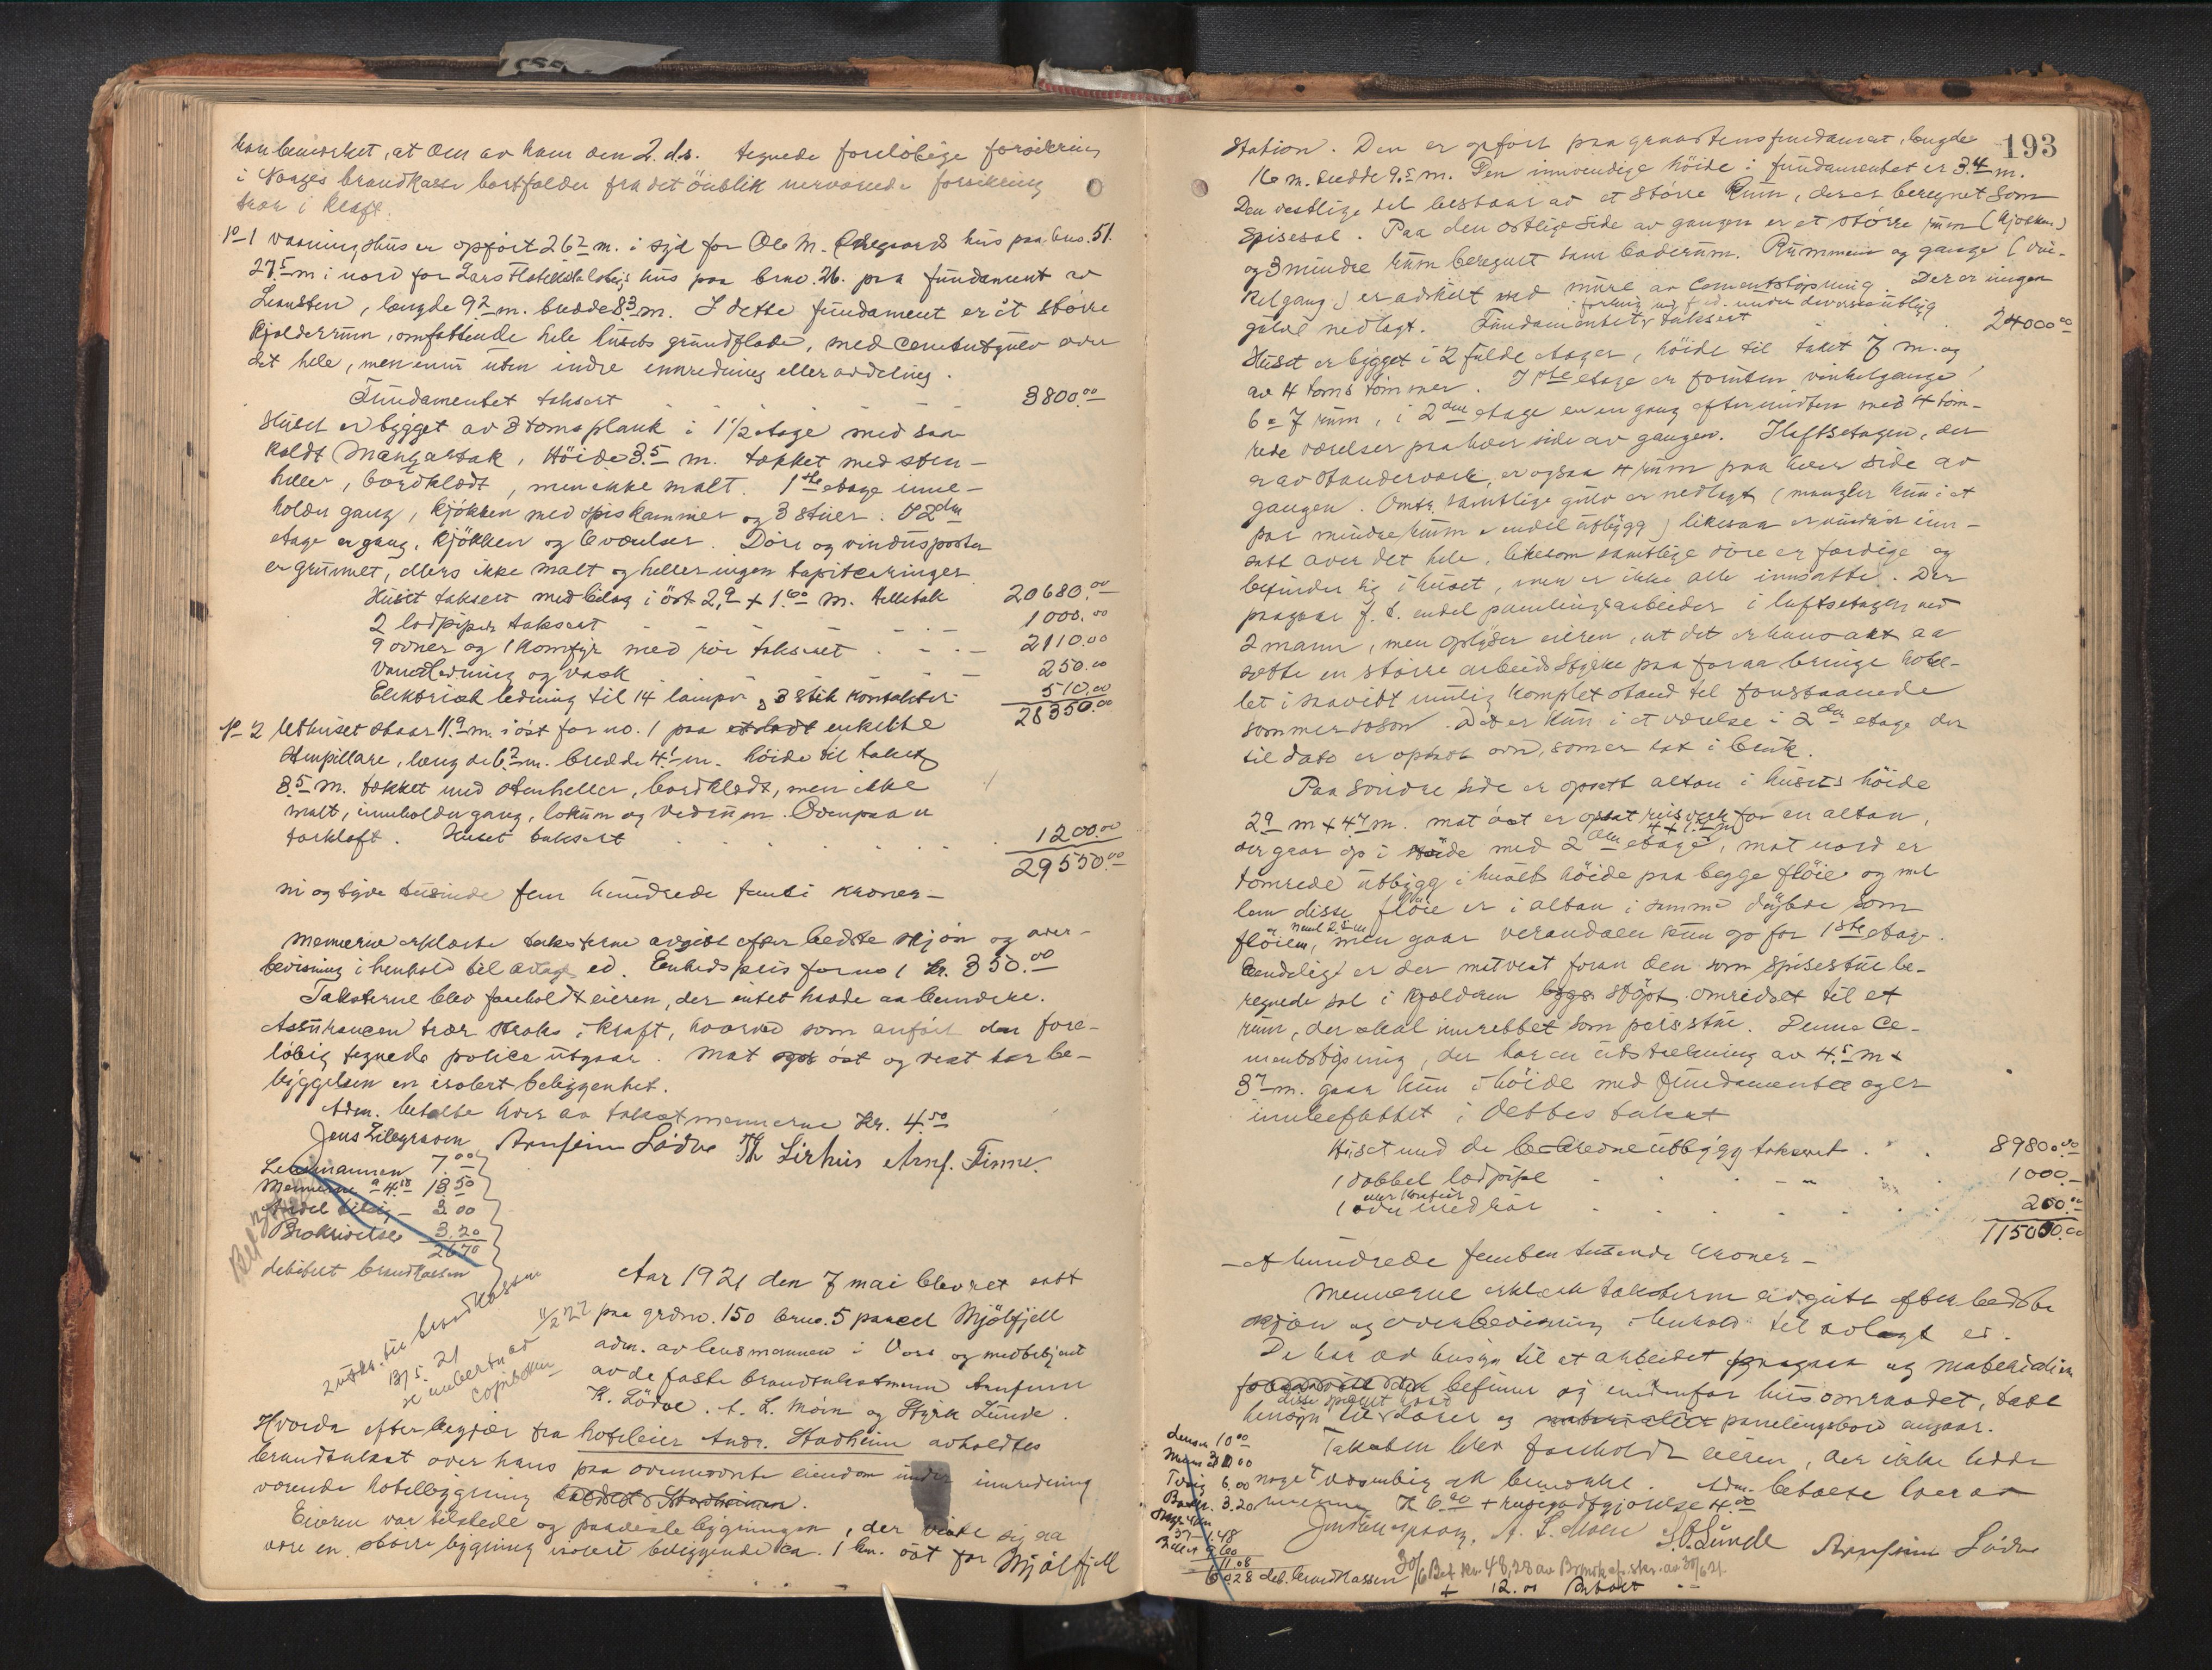 han bemerket, at den av ham den 2. d.s. tegnede foreløbige forsikring
i Norges brandkasse bortfalder fra det øieblik nærværende forsikring
trær i kraft.
No 1 vaaningshus er opført 26² m. i syd for Ole M. Ødegaards hus paa bno. 51.
27⁵ m i nord for Lars hus paa bno. 26. paa fundament av
Sementsten, længde 9² m. bredde 8³ m. I dette fundament er et større
kjælderrum, omfattende hele husets grundflate, med cementgulv over
det hele, men ennu uten indre innredning eller avdeling.
Fundamentet taksert 3800.00
Huset er bygget av 3 toms plank i 1 1/2 etage med saa-
kaldt Mansartak, Høide 3.5 m. tækket med sten-
heller, bordklædt, men ikke malt. 1ste etage inne-
holder gang, kjøkken med spiskammer og 3 stuer. I 2den
etage er gang, kjøkken og 6 værelser. Døre og vindusposter
er grunnet, ellers ikke malt og heller ingen tapitseringer
Huset taksert med bislag i øst 2,9 x 1.60 m. helletak 20680.00
2 lodpiper taksert 1000.00
9 ovner og 1 komfyr med rør taksert 2110.00
Vandledning og vask 250.00
Elektrisk ledning til 14 lamper og 3 stik kontakter 510.00
28350.00
No 2 Uthuset staar 11.9 m. i øst for no. 1 paa enkelte
stenpillare, længde 6.2 m. bredde 4.1 m. høide til taket
3.5 m. tækket med stenheller, bordklædt, men ikke
malt, inneholder gang, lokum og vedrum. Ovenpaa er
tørkloft. Huset taksert 1200.00
29550.00
ni og tyve tusinde fem hundrede femti kroner –
Mennerne erklærte taksterne avgit efter bedste skjøn og over-
bevisning i henhold til avlagt ed. Enhedspris for no 1 kr. 350.00
Taksterne blev foreholdt eieren, der intet hadde aa bemerke.
Assurancen trær straks i kraft, hvorved som anført den fore-
løbig tegnede police utgaar. Mot øst og vest har be-
byggelsen en isolert beliggenhet.
Adm. betalte hver av takstmennerne Kr. 4.50
Arnfinn Lødve Th Lirhus Arnf. Finne.
Lensmannen 7.00
Mennerne a 4.50 13.50
3.00
Brokrivelse 3.20
26.70
debitert brandkassen
Aar 1921 den 7 mai blev ret satt
paa grdno. 150 brno. 5 parcel Mjølfjell
adm. av lensmannen i Voss og medbetjent
av de faste brandtakstmenn Arnfinn
K. Lødve. A. L. Møen og Styrk Lunde.
Hvorda efter begjær fra hoteleier Andr. Stadheim avholdtes
brandtakst over hans paa ovennevnte eiendom under innredning
værende hotelbygning
Eieren var tilstede og paaviste bygningen, der viste sig aa
være en større bygning isolert beliggende ca. 1 km. øst for Mjølfjell
193
Station. Den er opført paa graastensfundament, længde
16 m. bredde 9.5 m. Den innvendige høide i fundamentet er 3.4 m.
Den vestlige del bestaar av et større Rum, der er beregnet som
Spisesal. Paa den østlige side av gangen er et større rum (kjøkken)
og 3 mindre rum beregnet som baderum. Rummene og gange (vin-
kelgang) er adskilt med mure av Cementstøpning. Der er ingen
under diverse utbygg
gulve nedlagt. Fundamentet taksert 24000.00
Huset er bygget i 2 fulde etager, høide til taket 7 m. og
av 4 toms tømmer. I 1ste etage er foruten vinkelgange
6 a 7 rum, i 2den etage er en gang efter midten med 4 tøm-
rede værelser paa hver side av gangen. I loftsetagen, der
er av standerverk, er ogsaa 4 rum paa hver side av
gangen. Omtr. samtlige gulv er nedlagt (mangler kun i et
par mindre rum & endel utbygg) likesaa er vinduer inn-
satt over det hele, likesom samtlige døre er færdige og
befinder sig i huset, men er ikke alle innsatte. Der
paagaar f. t. endel panelingsarbeider i loftsetagen ved
2 mann, men oplyser eieren, at det er hans akt aa
sætte en større arbeidsstyrke paa for aa bringe hotel-
let i saavidt mulig komplet stand til forestaaende
sommersæson. Det er kun i et værelse i 2den etage der
til dato er opsatt ovn, som er tat i bruk.
Paa søndre side er opsatt altan i husets høide
2.9 m x 4.4 m. mot øst er opsat reisverk for en altan,
der gaar op i høide med 2den etage, mot nord er
tømrede utbygg i husets høide paa begge fløie og mel
lem disse fløie er i altan i samme dybde som
fløiene, men gaar verandaen kun op for 1ste etage.
Eendelig er der mot vest foran den som spisestue be-
regnede sal i kjælderen støpt området til et
rum, der skal innrettet som peisstue. Denne Ce-
mentstøpning, der har en utstrekning av 4.5 m x
3.7 m. gaar kun i høide med fundamentet og er
innbefattet i dettes takst
Huset med de beskrevne utbygg taksert 89800.00
1 dobbel lodpipe 1000.–
1 ovn med rør 200.00
115000.00
– et hundrede femten tusende kroner –
Mennerne erklærte taksterne avgitt efter bedste
skjøn og overbevisning i henhold til avlagt ed.
De har av hensyn til at arbeidet paagaar og materialier
befinner sig innenfor husomraadet, tatt
hensyn til dører og panelingsbord angaar.
Taksten blev foreholdt eieren, der ikke hadde
noget væsentlig at bemerke. Adm. betalte hver av
mennerne Kr 6.00 + reisegodtgjørelse 4.00
A. L. Møen S. Lunde Arnfinn Lødve
10.00
6.00
3.20
11.08
deb. brandkassen